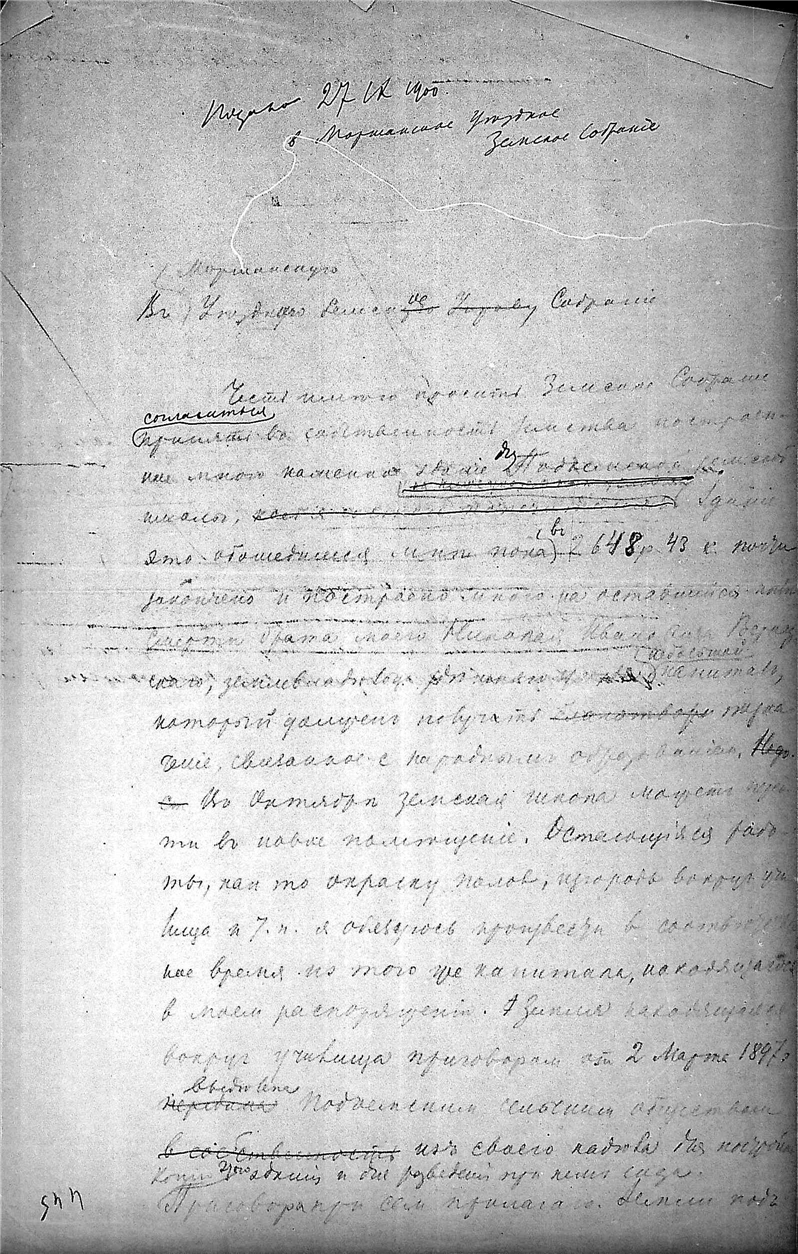 Подано 27 IX 1900.
в Моршанское Уездное
Земское Собраніе
Моршанскую
Въ Уездное Земское Управу Собраніе
Честь имею просить Земское Собраніе
согласиться
принять въ собственность Земства построен-
ное мною каменное зданіе для Подъемской земской
школы, Зданіе
это обошедшееся мне пока въ 2648 р. 43 к. почти
закончено и построено мною на оставшійся после
смерти брата моего Николая Ивановича Вернад-
скаго, землевладельца капиталъ,
который долженъ получить назна-
ченіе, связанное с народнымъ образованіем.
Въ Октябре земская школа можетъ перей-
ти въ новое помещеніе. Остающіяся рабо-
ты, как то окраску полов, изгородь вокруг учи-
лища и т. п. я обязуюсь произвести в соответствен-
ное время из того же капитала, находящагося
в моем распоряженіи. Земля находящаяся
вокруг училища приговором от 2 Марта 1897 г
выделена
передана Подъемским сельским обществом
в собственность изъ своего надела для постройки
Копію этого зданія и для разведенія при немъ сада.
Приговора при сем прилагаю. Земли подъ
445